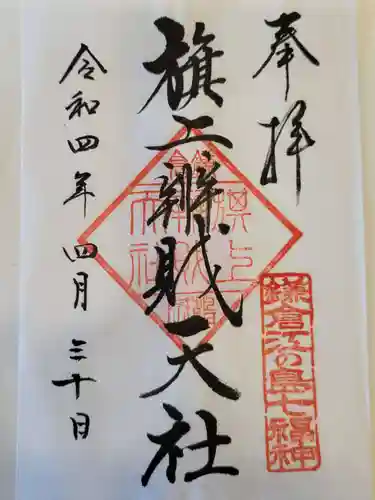 奉拝
旗上辨財天社
令和四年四月三十日
鎌倉江の島七福神